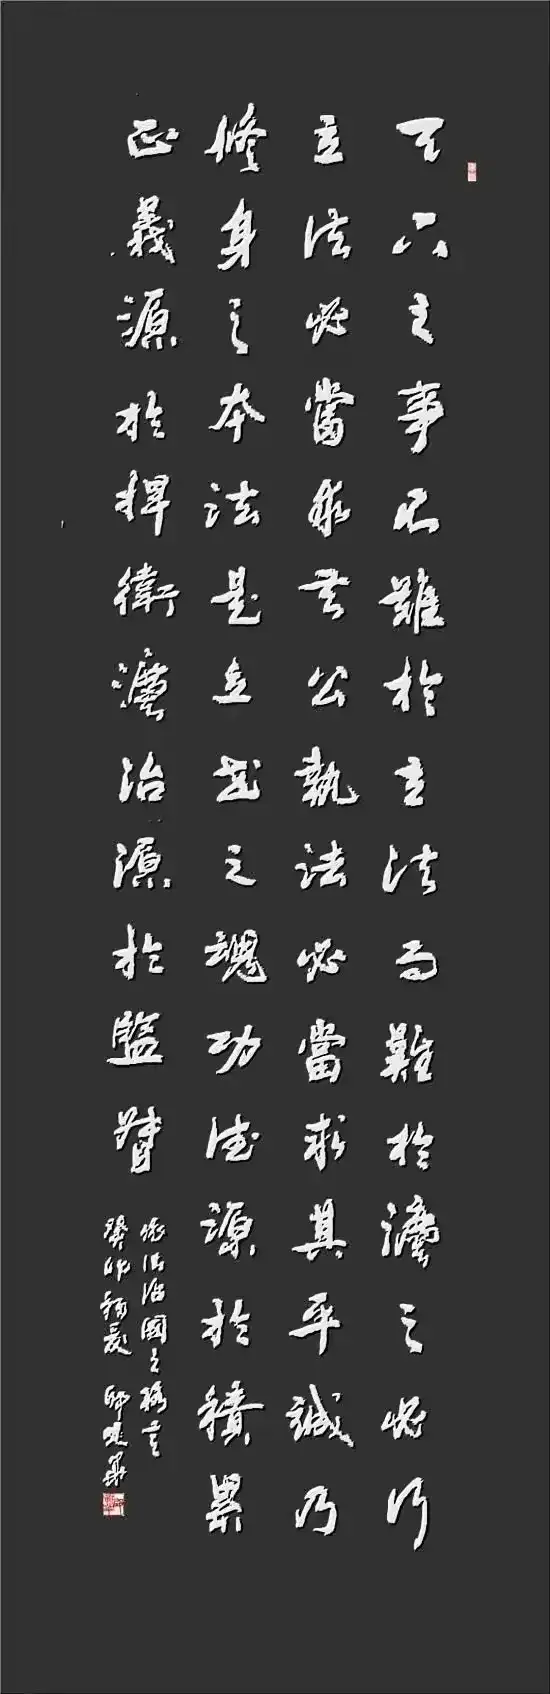 天下之事不難於立法而難於灋之必行
立法必當求其公執法必當求其平誠乃
修身之本法是立戎之魂功德源於積累
正義源於捍衛灋治源於監督
依法治國之格言
癸卯初夏 邱曉華